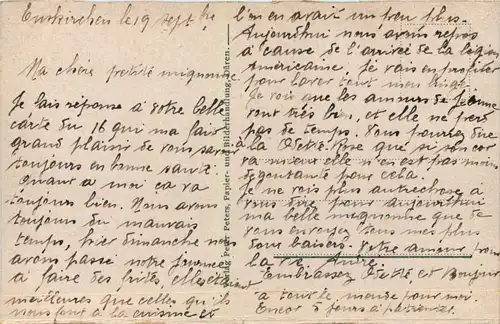 Euskirchen le 19 Sept
Ma chère petite mignonne
Je fais réponse à votre belle
carte du 16 qui ma fait
grand plaisir de vous savoir
toujours en bonne santé.
Quant à moi ca va
toujours bien. Nous avons
toujours du mauvais
temps, hier dimanche nous
avons passé notre journée
à faire des frites, elles étaient
meilleures que celles qu'ils
nous font à la cuisine et
l'on en avait un peu plus.
Aujourd'hui nous avons repos
à cause de l'arrivée de la
Américaine. Je vais en profiter
pour laver tout mon linge.
Je vois que les amours de
vont très bien, et elle ne perd
pas de temps. Vous pourrez dire
à la que si son cor
va mieux elle n'en est pas moins
dégoutante pour cela.
Je ne vois plus autre chose à
vous dire pour aujourd'hui
ma belle mignonne que de
vous envoyer tous mes plus
doux baisers. Votre amour pour
la vie André.
Embrassez et Bonjour
à tout le monde pour moi
Encor jours à patienter.
Verlag Peter Peters, Papier- und Bilderhandlung, Düren.